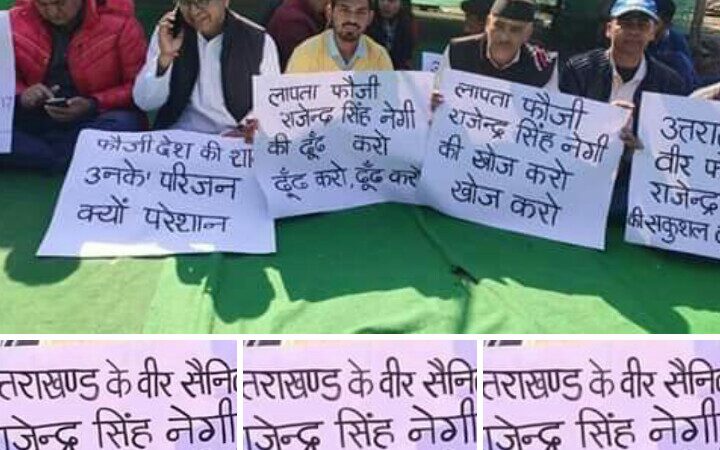 फौजी देश की शा
उनके परिजन
क्यों परेशान
लापता फौजी
राजेन्द्र सिंह नेगी
की ढूँढ करो
ढूँढ करो, ढूँढ करो
लापता फौजी
राजेन्द्र सिंह नेगी
की खोज करो
खोज करो
उतरा
वीर फ
राजेन्द्र
की सकुशल
त्तराखण्ड के वीर सैनि
ाजेन्द्र सिंह नेगी
तराखण्ड के वीर सैनि
ाजेन्द्र सिंह नेगी
तराखण्ड के वीर सैनि
ाजेन्द्र सिंह नेगी